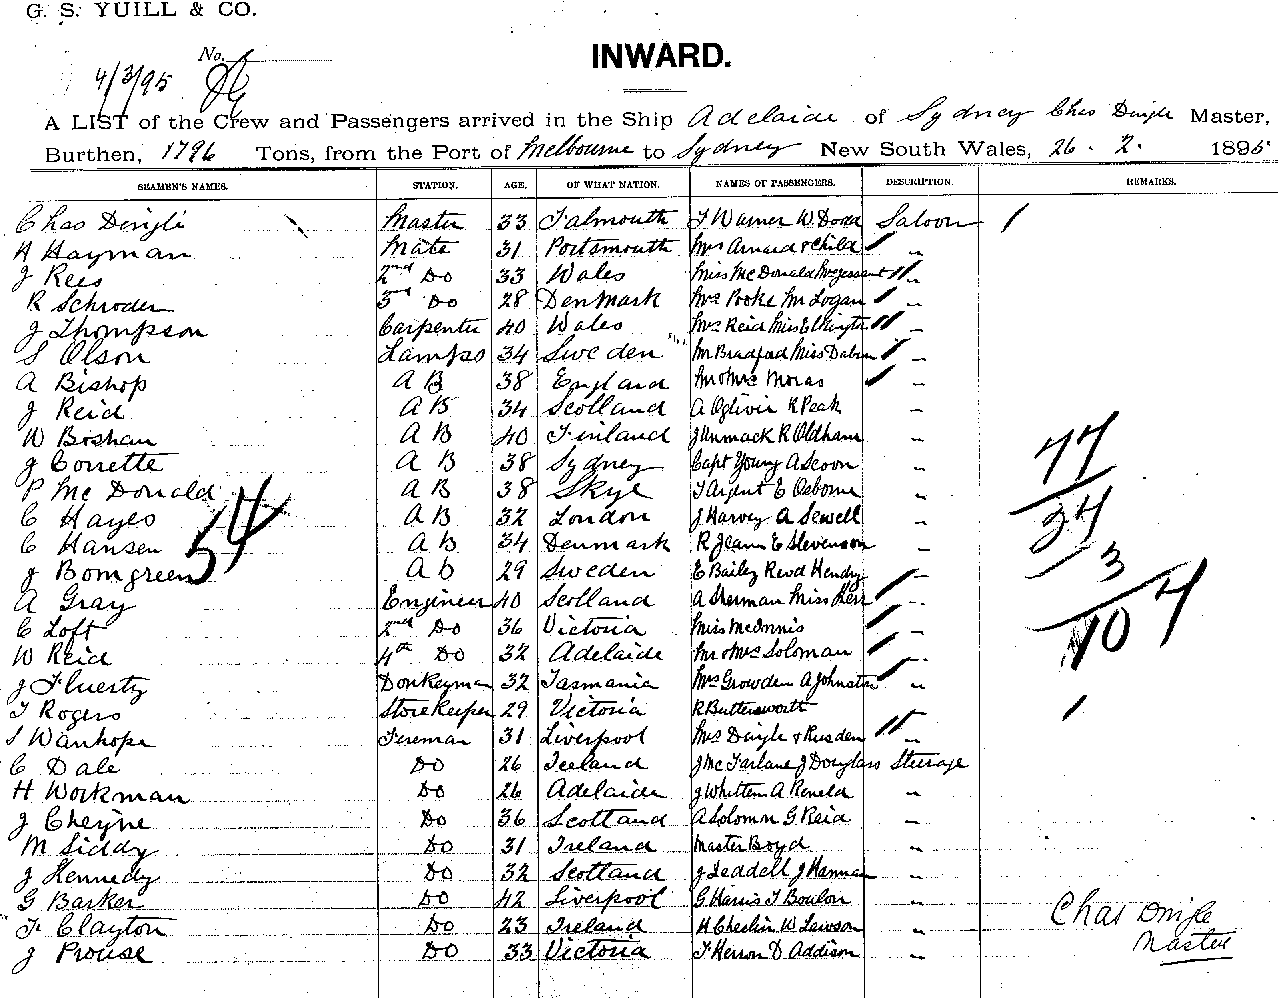 G. S. YUILL & CO.
No.
4/3/95
INWARD.
A LIST of the Crew and Passengers arrived in the Ship Adelaide of Sydney Chas Dingle Master,
Burthen, 1796 Tons, from the Port of Melbourne to Sydney New South Wales, 26 . 2. 1895
SEAMEN'S NAMES. STATION. AGE. OF WHAT NATION. NAMES OF PASSENGERS. DESCRIPTION. REMARKS.
Chas Dingle Master 33 Falmouth T Warner W Dodd Saloon
H Hayman Mate 31 Portsmouth Mrs Arnard & Child "
J Rees 2nd Do 33 Wales Miss McDonald "
R Schroder 3rd Do 28 Denmark Mrs Pooke Mr Logan "
J Thompson Carpenter 40 Wales Mrs Reid Miss Elkington "
S Olson Lamps 34 Sweden Mr Bradford Miss "
A Bishop A B 38 England Mr & Mrs Moras "
J Reid A B 34 Scotland A Ogilvie R Peak "
W Boshan A B 40 Finland J Unmack R Oldham "
J Corrette A B 38 Sydney Capt Young A Scoon "
P McDonald A B 38 Skye T Argent E Osborne "
C Hayes A B 32 London J Harvey A Sewell "
C Hansen A B 34 Denmark R Jeans E Stevenson "
J Bomgreen A B 29 Sweden E Bailey Revd Hendry "
A Gray Engineer 40 Scotland A Sherman Miss Kerr "
C Loft 2nd Do 36 Victoria Miss McInnis "
W Reid 4th Do 32 Adelaide Mr & Mrs Soloman "
J Fluerty Donkeyman 32 Tasmania Mrs Growden A Johnston "
T Rogers Storekeeper 29 Victoria R Buttersworth "
S Wanhope Fireman 31 Liverpool Mrs Dingle & Rusden "
C Dale Do 26 Iceland J McFarlane J Douglass Steerage
H Workman Do 26 Adelaide J Whitten A Roneld "
J Cheyne Do 36 Scotland A Solomn G Reid "
M Siddy Do 31 Ireland Master Boyd "
J Kennedy Do 32 Scotland J Leddell J Hannan "
G Barker Do 42 Liverpool G Harris T Boulon "
F Clayton Do 23 Ireland H Cheslin W Lawson "
J Prouse Do 33 Victoria T Herron D Addison "
54
77
24
3
104
Chas Dingle
Master